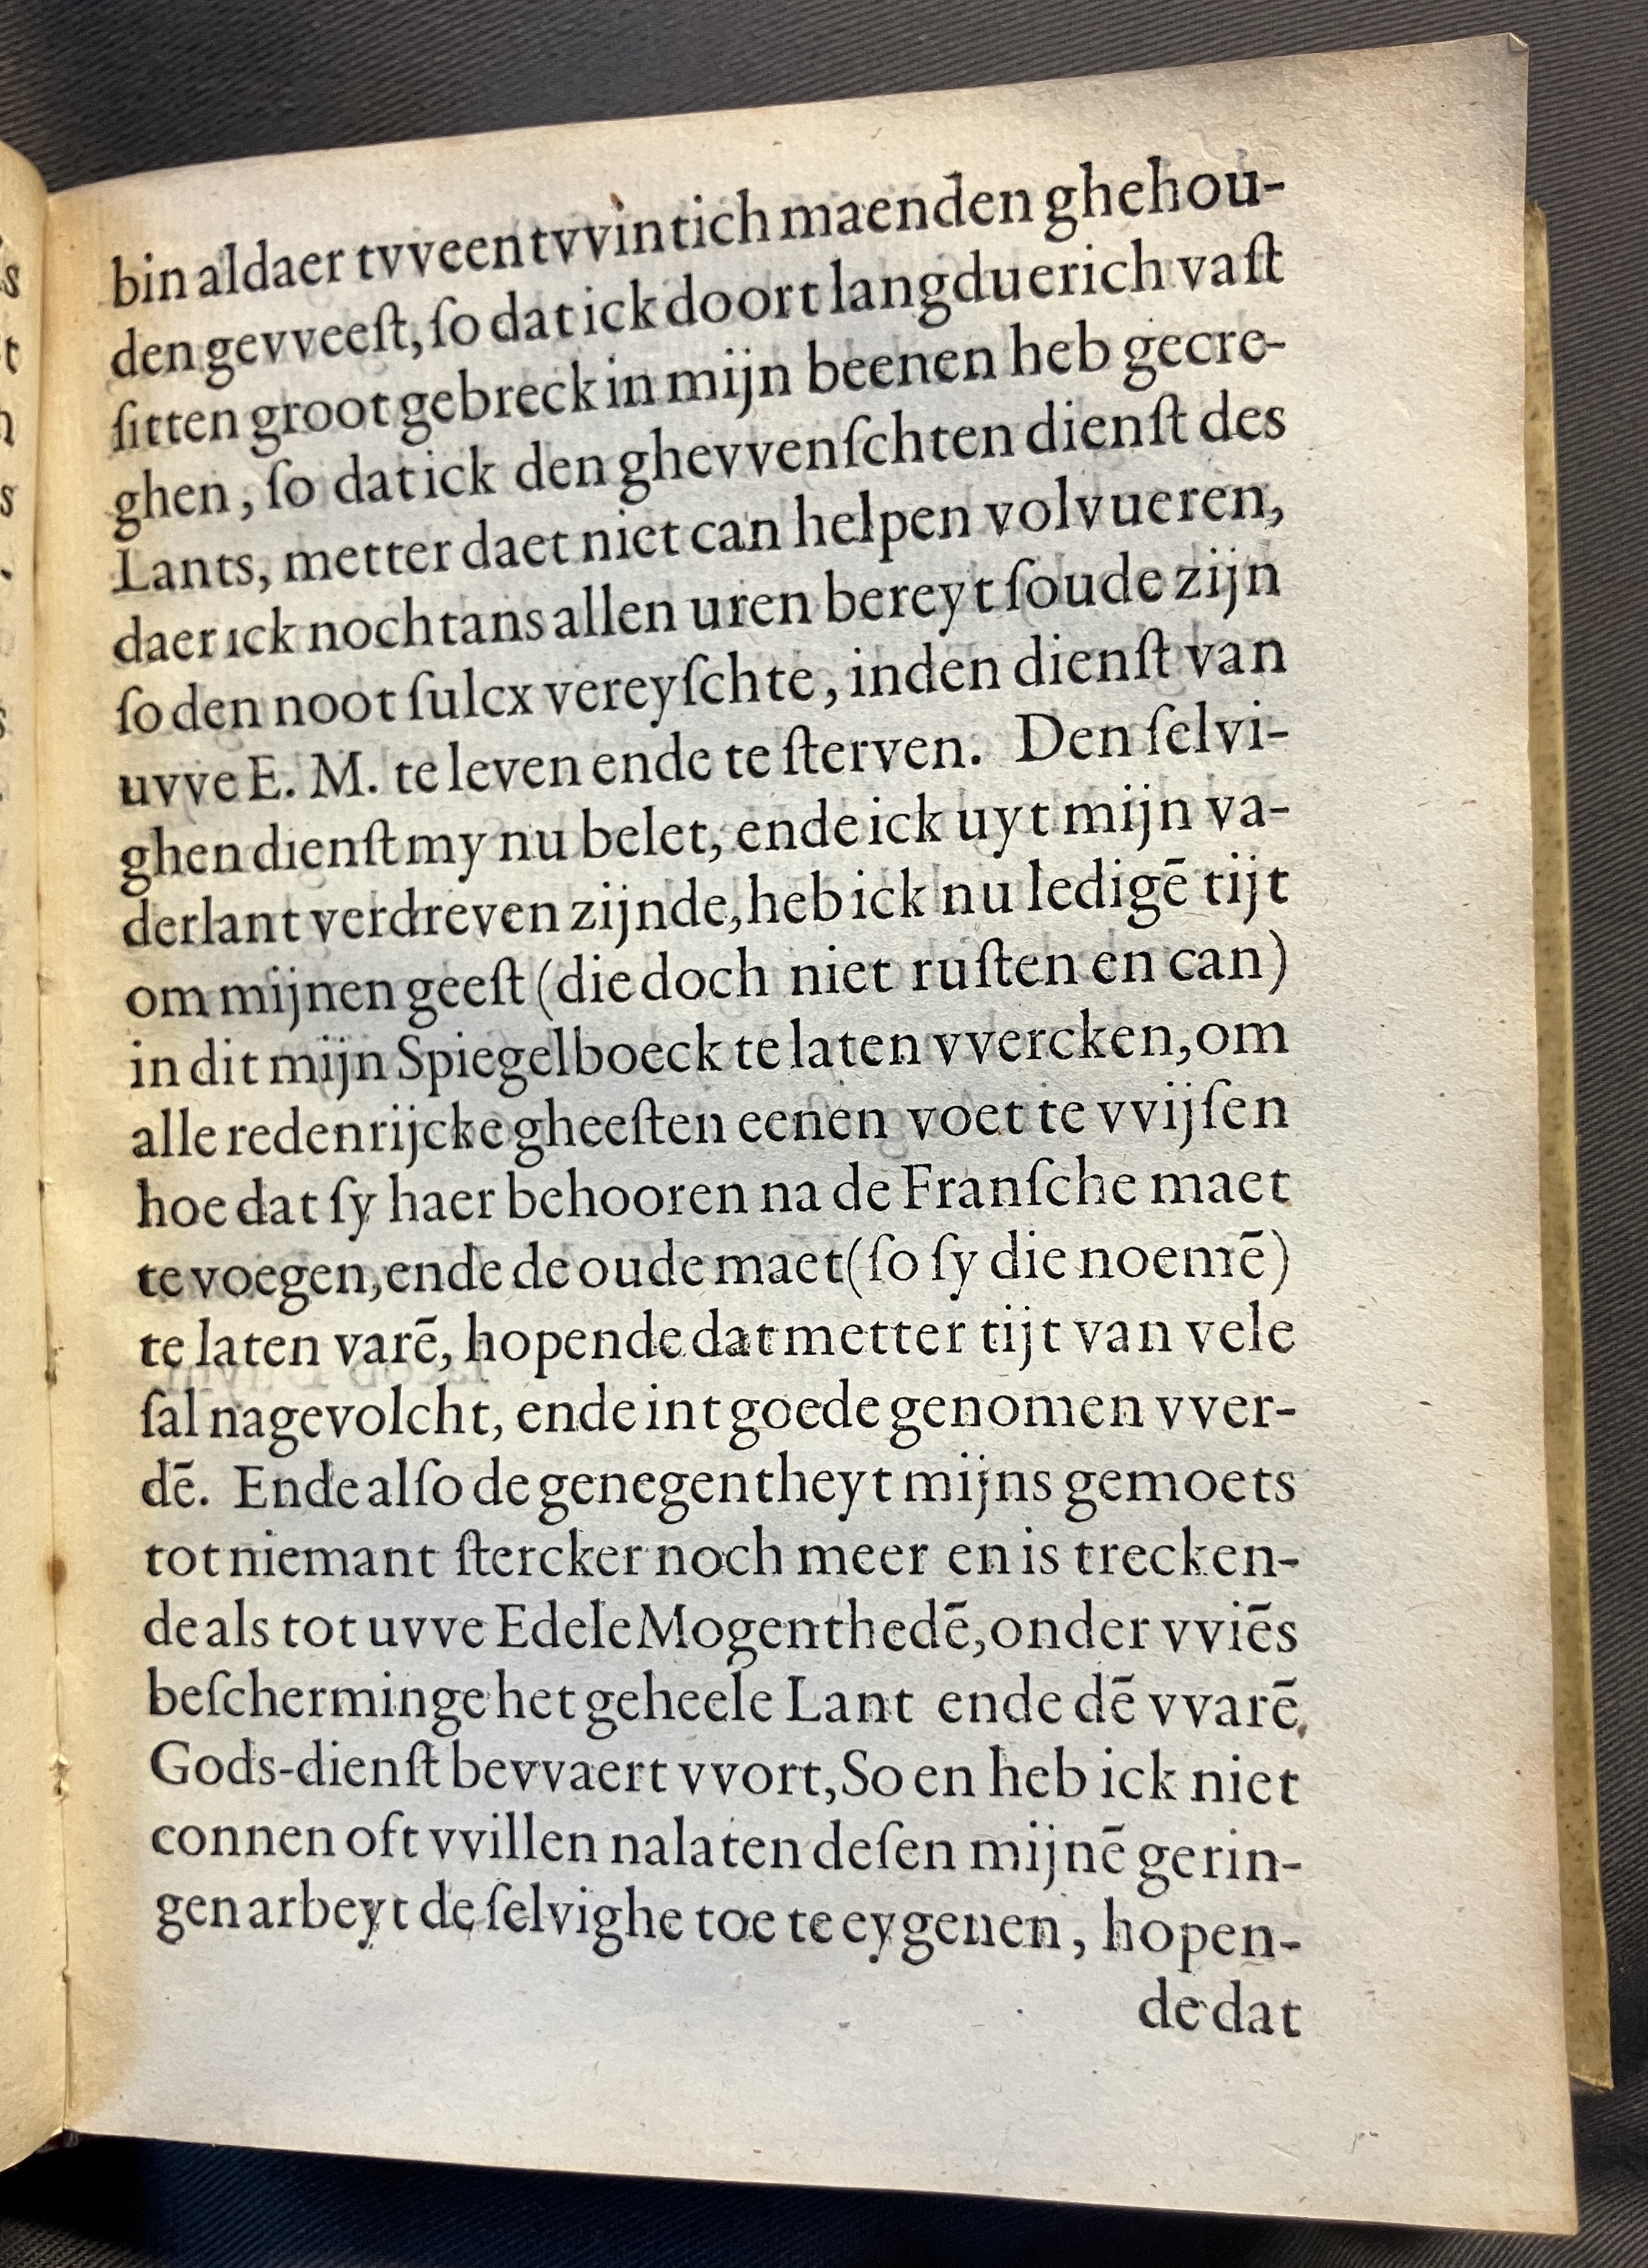 bin aldaer tvveentvvintich maenden ghehou-
den gevveeſt, ſo dat ick doort langduerich vaſt
ſitten groot gebreck in mijn beenen heb gecre-
ghen, ſo dat ick den ghevvenſchten dienſt des
Lants, metter daet niet can helpen volvueren,
daer ick nochtans allen uren bereyt ſoude zijn
ſo den noot ſulcx vereyſchte, inden dienſt van
uvve E. M. te leven ende te ſterven. Den ſelvi-
ghen dienſt my nu belet, ende ick uyt mijn va-
derlant verdreven zijnde, heb ick nu ledigē tijt
om mijnen geeſt (die doch niet ruſten en can)
in dit mijn Spiegelboeck te laten vvercken, om
alle redenrijcke gheeſten eenen voet te vvijſen
hoe dat ſy haer behooren na de Franſche maet
te voegen, ende de oude maet (ſo ſy die noemē)
te laten varē, hopende dat metter tijt van vele
ſal nagevolcht, ende int goede genomen vver-
dē. Ende alſo de genegentheyt mijns gemoets
tot niemant ſtercker noch meer en is trecken-
de als tot uvve Edele Mogenthedē, onder vviēs
beſcherminge het geheele Lant ende dē vvarē
Gods-dienſt bevvaert vvort, So en heb ick niet
connen oft vvillen nalaten deſen mijnē gerin-
gen arbeyt de ſelvighe toe te eygenen, hopen-
de dat